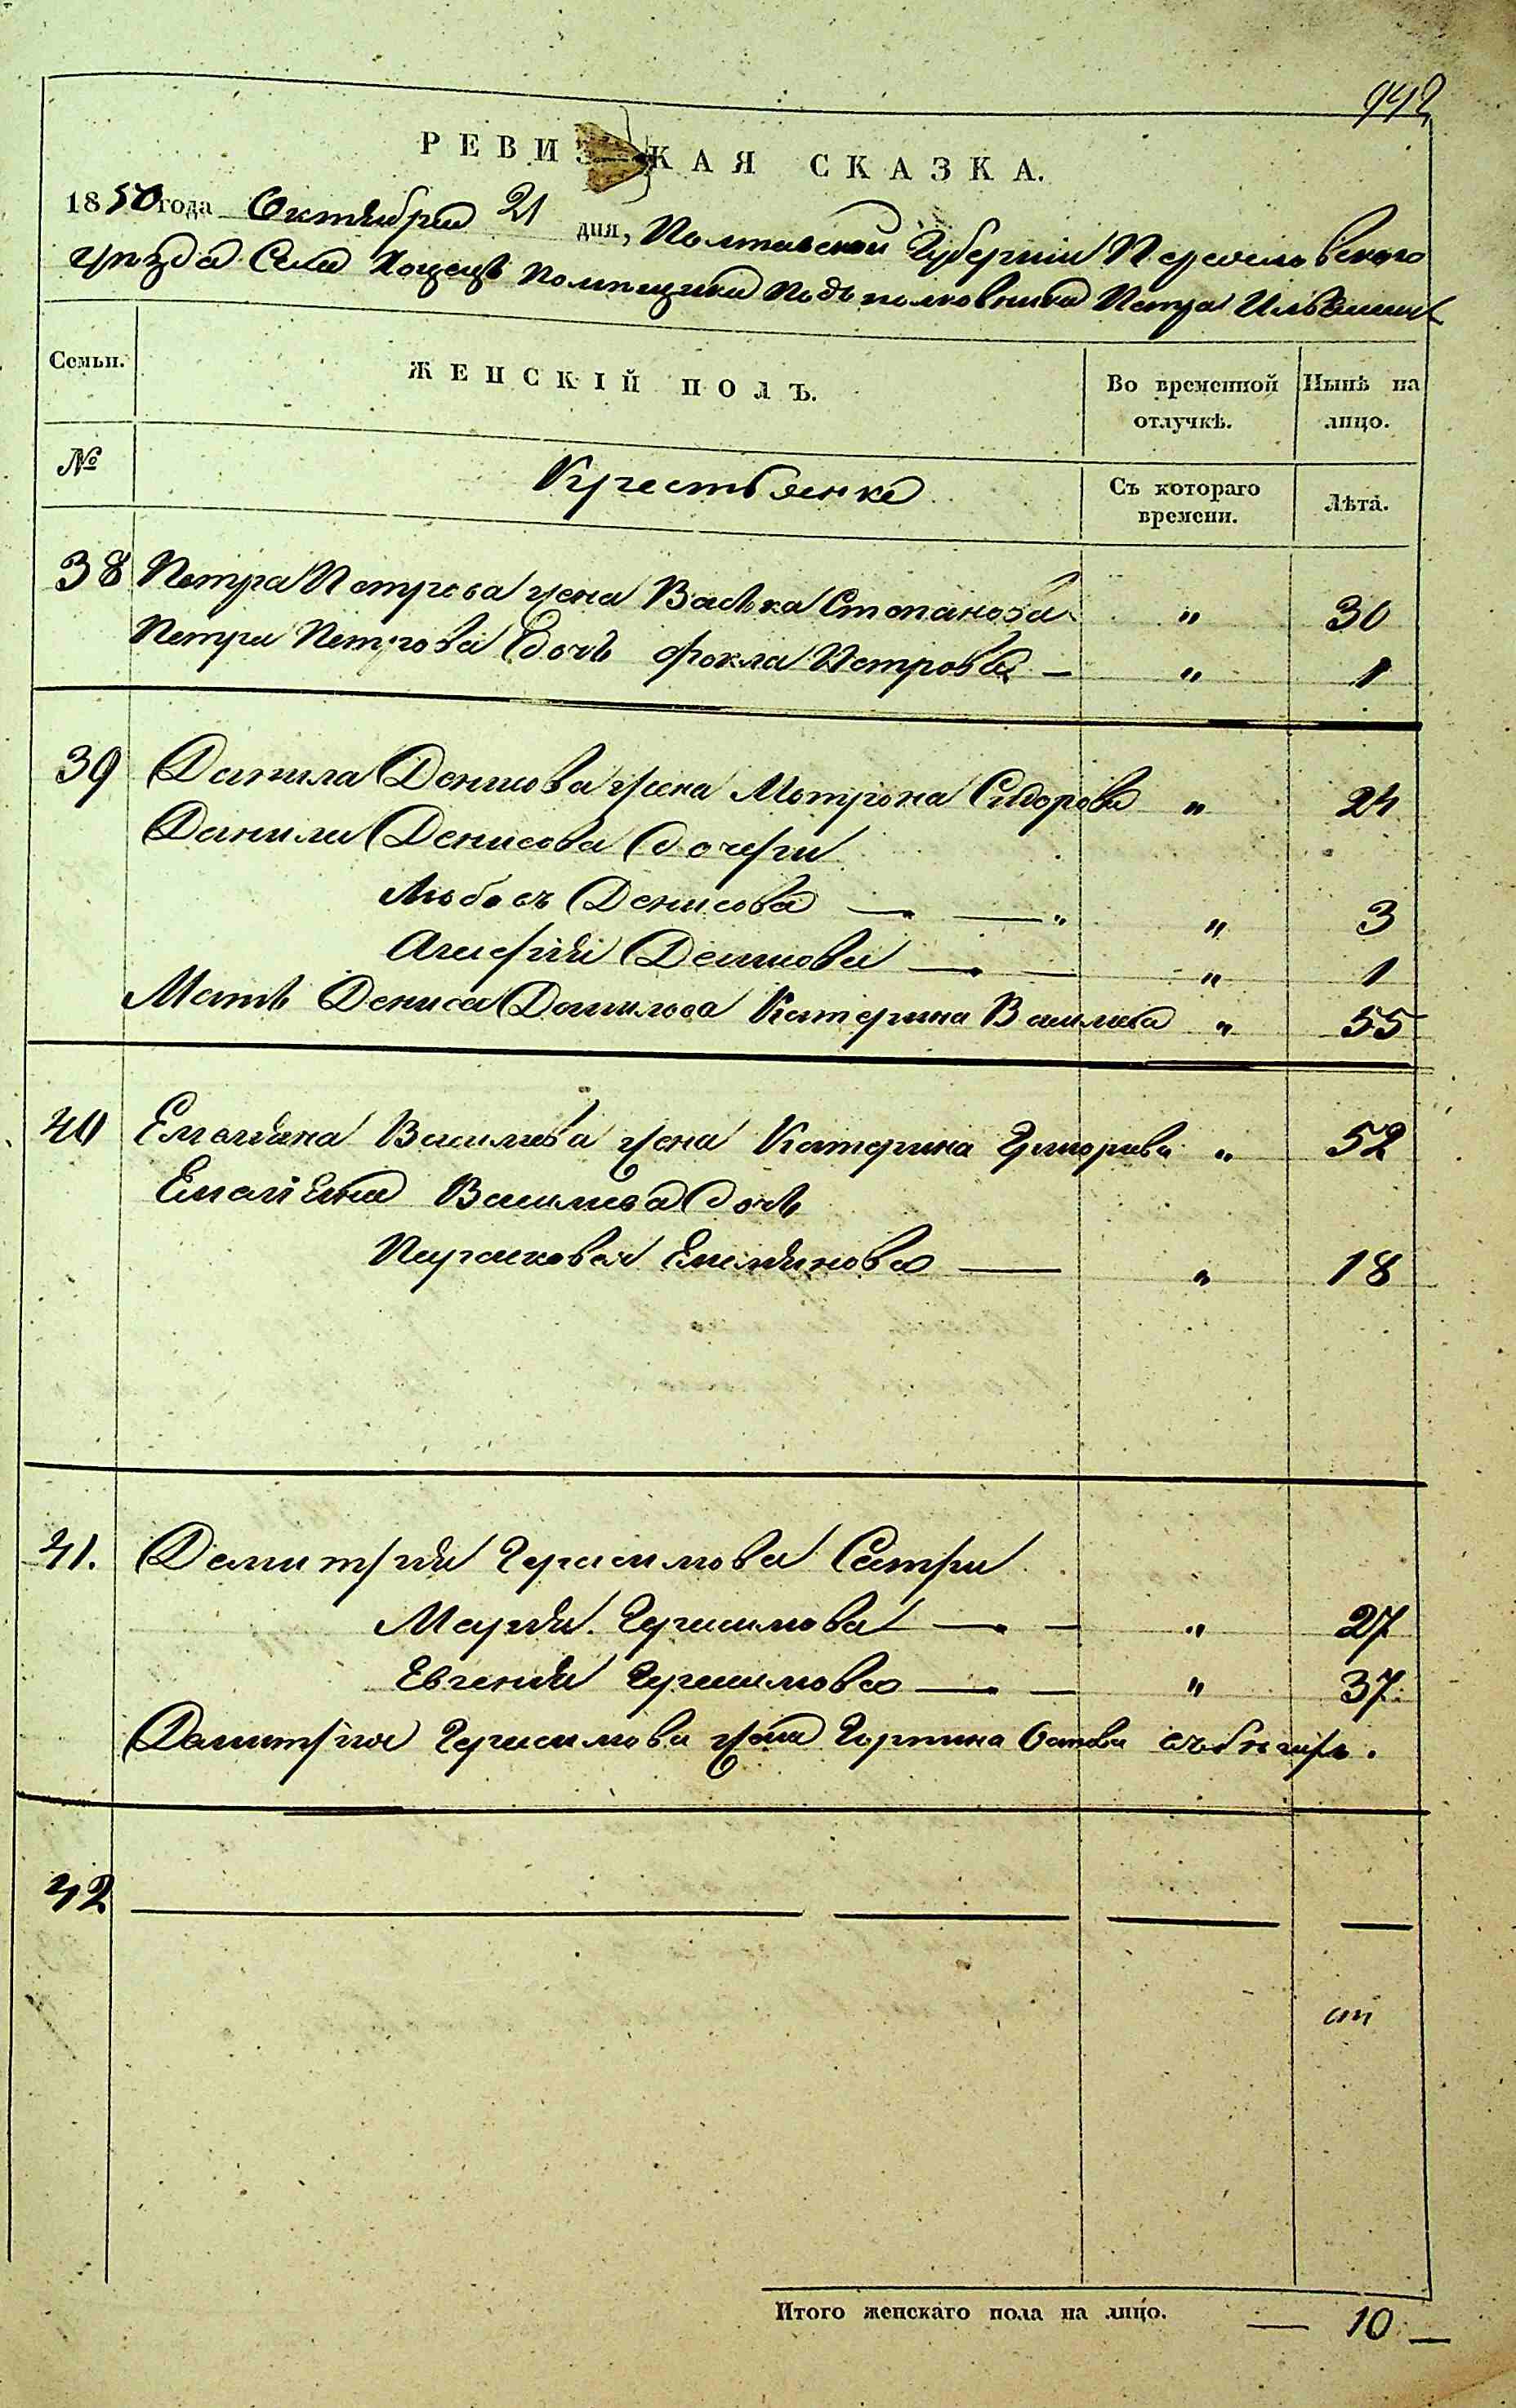 992
РЕВИЗСКАЯ СКАЗКА.
1850 года Октября 21 дня, Полтавской Губернии Переяславского
уезда Села Помещика Подполковника Петра
Семьи.
ЖЕНСКІЙ ПОЛЪ.
Во временной отлучкѣ.
Нынѣ на лицо.
№
Крестьянке
Съ котораго времени.
Лѣта.
38 Петра Петрова жена Васѣка Степанова " 30
Петра Петрова дочь Фокла Петрова — " 1
39 Данила Денисова жена Мотрона Сидорова " 24
Данила Денисова дочери
Любовъ Денисова — — " " 3
Денисова — — " 1
Мать Дениса Данилова Катерина Василева " 55
40 Емелияна Василева жена Катерина " 52
Емелияна Василева дочь
Парасковая Емелиянова — " 18
41. Демитрия Герасимова Сестри
Мария Герасимова — — " 27
Евгения Герасимова — — " 37
Демитрия Герасимова жена
42 — — — —
Итого женскаго пола на лицо. — 10 —